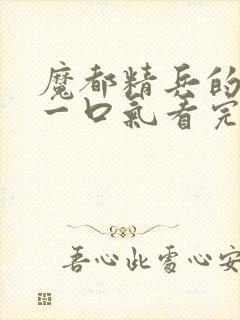 魔都精兵的
一口氣看完
吾心此處心安